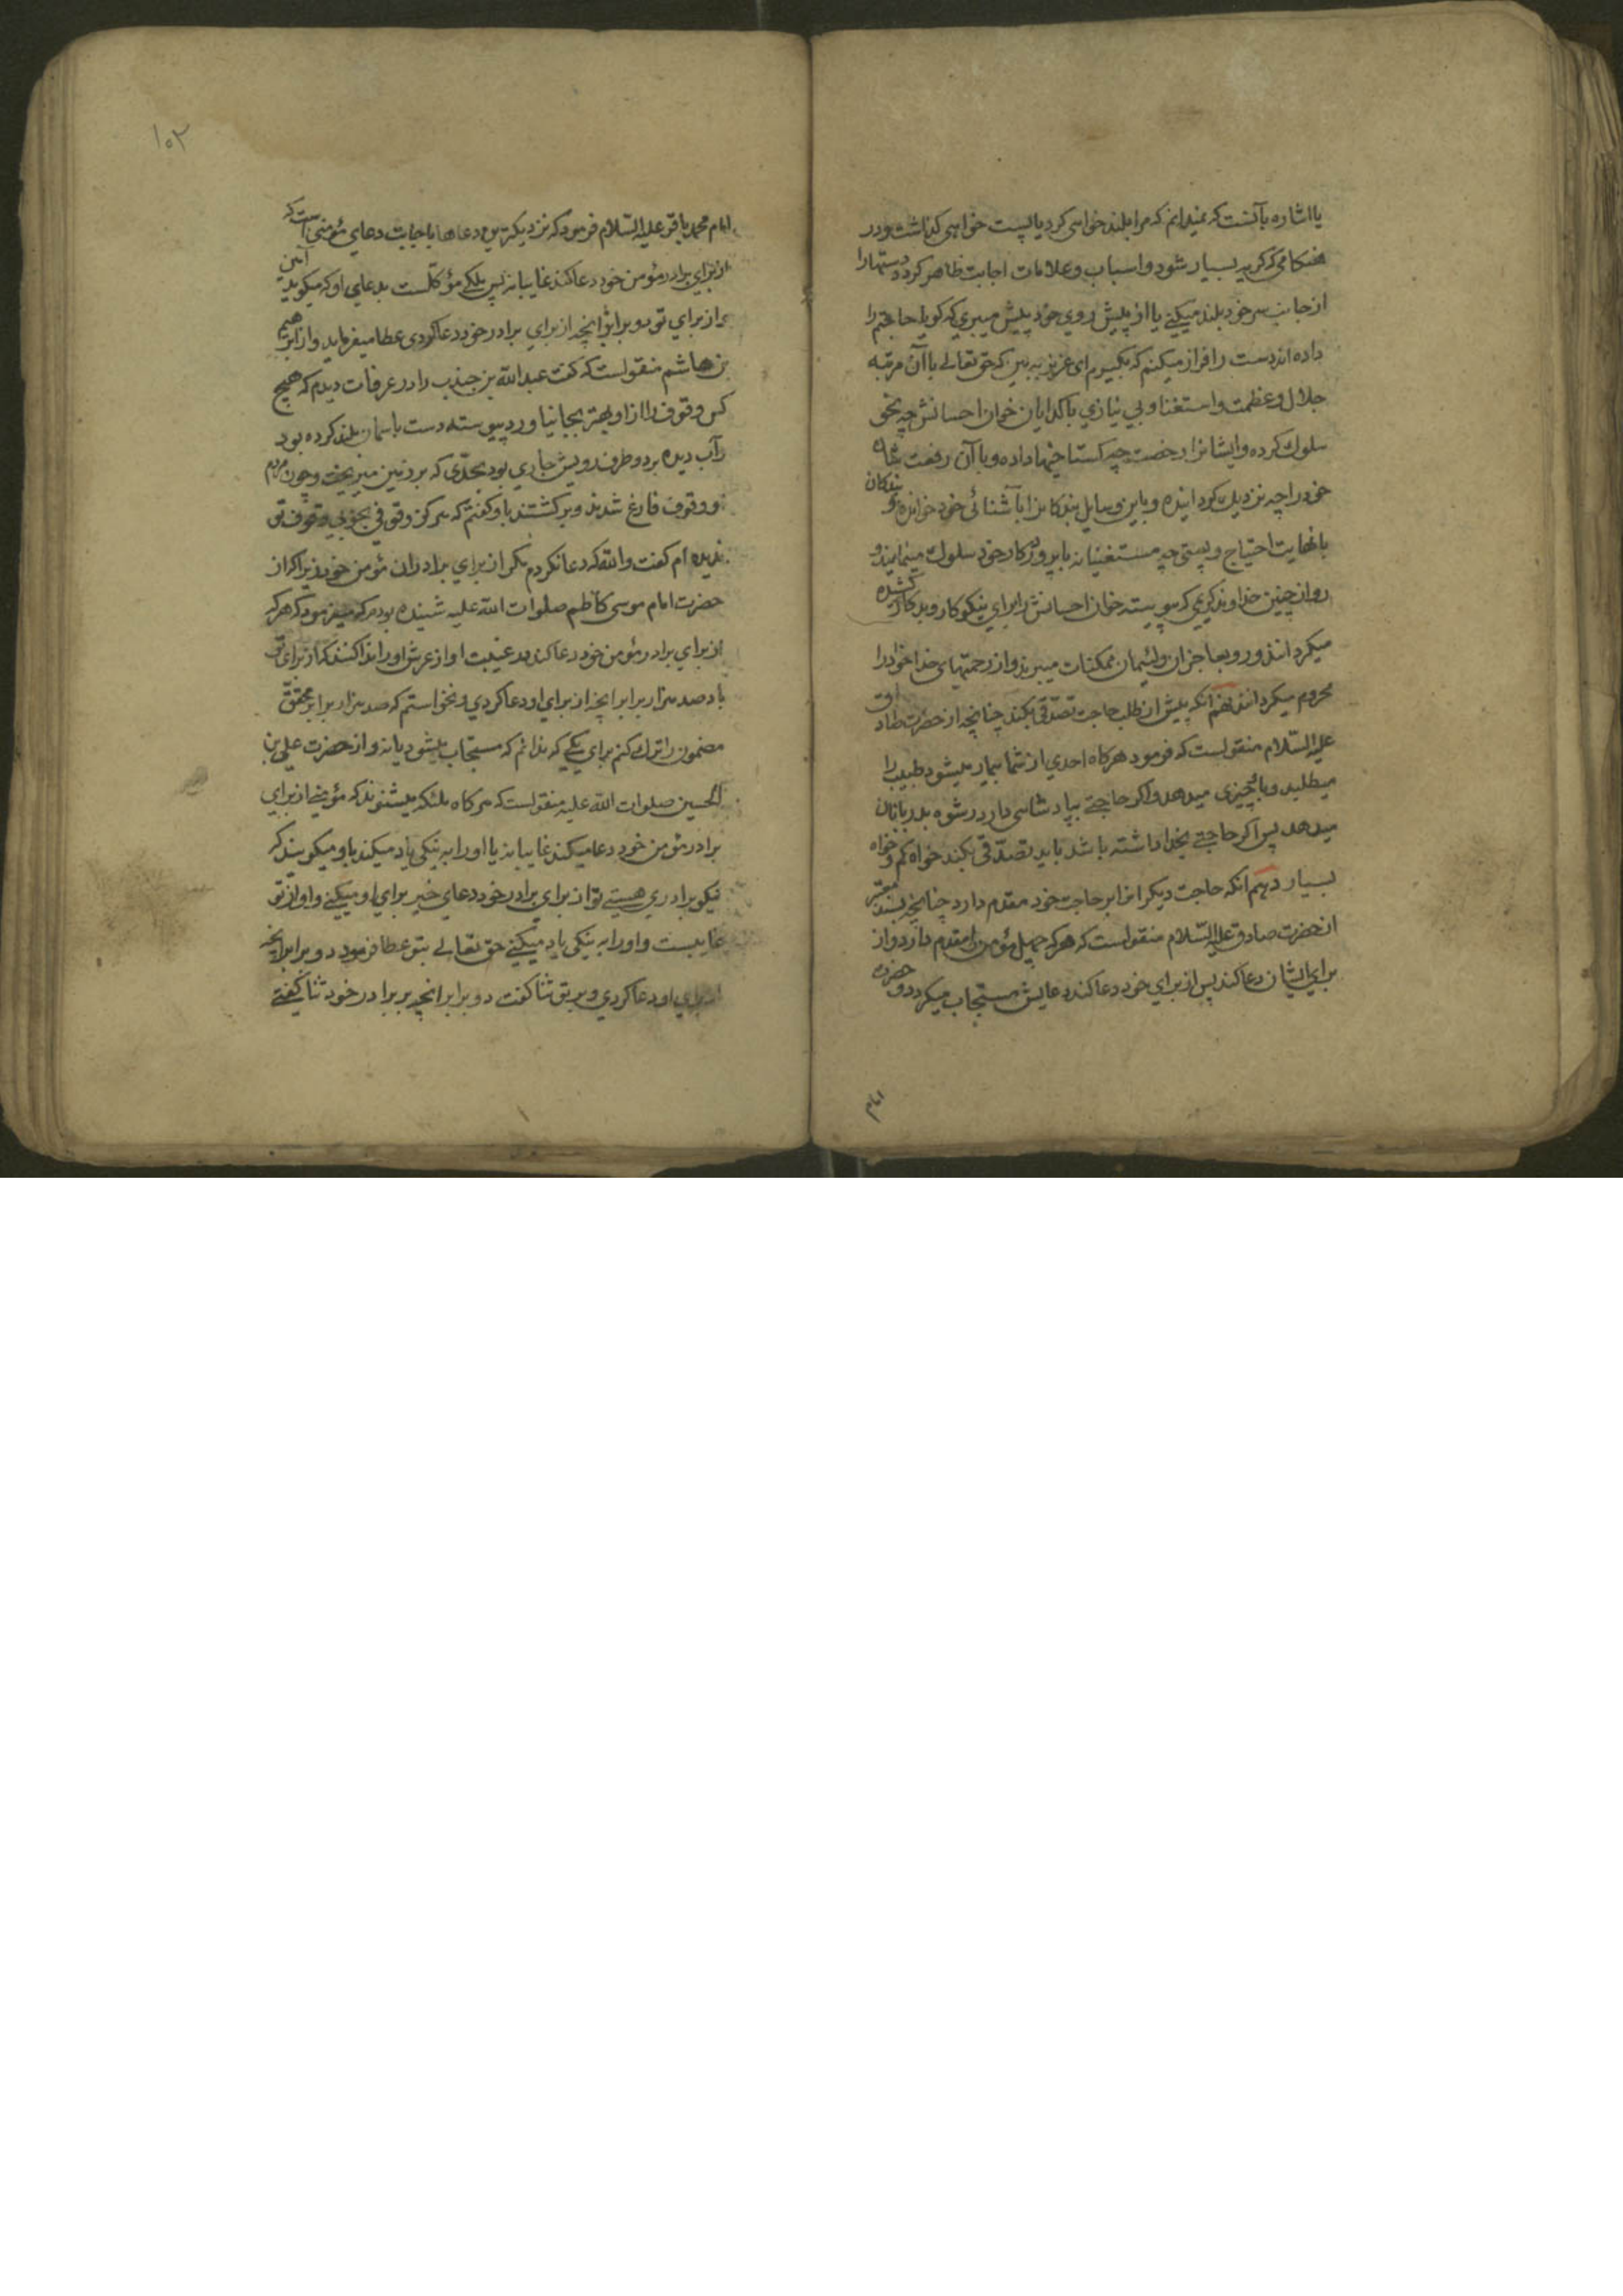 یا اشاره بآنست که نمیدانم که مرا بلند خواهی کرد یا پست خواهی گذاشت و در
هنکامی که کریه بسیار شود و اسباب و علامات اجابت ظاهر کردد دستها را
از جانب سر خود بلند میکنے یا از پیش روی خود پیش میبری که کویا حاجتم را
داده اند دست را فراز میکنم که بکیرم ای عزیز ببین که حق تعالے با آن مرتبه
جلال و عظمت و استغنا و بی نیازی با کدایان خوان احسانش چه نحو
سلوك کرده و ایشانرا رخصت چه کستاخیها داده و با آن رفعت شان
خود را چه نزدیك کردانیده و باین وسایل بندکانرا با آشنائی خود خوانده و بندکان
با نهایت احتیاج و پستی چه مستغنیانه با پروردکار خود سلوك مینمایند و
رو از چنین خداوند کریمی که پیوسته خوان احسانش را برای نیکوکار و بدکار کشیده
میکردانند و رو بعاجزان و لئیمان ممکنات میبرند و از رحمتهای خدا خود را
محروم میکردانند نهم آنکه پیش از طلب حاجت تصدّقی بکند چنانچه از حضرت صادق
علیه السّلام منقولست که فرمود هرکاه احدی از شما بیمار میشود طبیب را
میطلبد و باو چیزی میدهد و اکر حاجتے بپادشاهی دارد رشوه بدربانان
میدهد پس اکر حاجتے بخدا داشته باشد باید تصدّقی بکند خواه کم و خواه
بسیار دهم آنکه حاجت دیکرانرا بر حاجت خود مقدم دارد چنانچه بسند معتبر
از حضرت صادق علیه السّلام منقولست که هرکه چهل مؤمن را مقدم دارد و از
برای ایشان دعا کند پس از برای خود دعا کند دعایش مستجاب میکردد و حضرت
امام
۱۰۲
امام محمد باقر علیه السّلام فرمود که نزدیکترین دعاها باجابت دعای مؤمنی است که
از برای برادر مؤمن خود دعا کند غایبانه پس ملکے مؤکّلست بدعای او که میکوید آمین
و از برای تو دو برابر آنچه از برای برادر خود دعا کردی عطا میفرماید و از ابراهیم
بن هاشم منقولست که کفت عبد الله بن جندب را در عرفات دیدم که هیچ
کس وقوف را از او بهتر بجا نیاورد پیوسته دست باسمان بلند کرده بود
و آب دیده بر دو طرف رویش جاری بود بحدّی که بر زمین میریخت و چون مردم
از وقوف فارغ شدند و برکشتند باو کفتم که هرکز وقوفی بخوبی وقوف تو
ندیده ام کفت والله که دعا نکردم مکر از برای برادران مؤمن خود زیرا که از
حضرت امام موسی کاظم صلوات الله علیه شنیده بودم که میفرمود که هرکه
از برای برادر مؤمن خود دعا کند در غیبت او از عرش او را ندا کنند که از برای تو
باد صد هزار برابر آنچه از برای او دعا کردی و نخواستم که صد هزار برابر محقق
مضمون را ترك کنم برای یکے که ندانم که مستجاب میشود یا نه و از حضرت علی بن
الحسین صلوات الله علیه منقولست که هرکاه ملئکه میشنوند که مؤمنے از برای
برادر مؤمن خود دعا میکند غایبانه یا او را به نیکی یاد میکند باو میکویند که
نیکو برادری هستے تو از برای برادر خود دعای خیر برای او میکنے و او از تو
غایبست و او را به نیکی یاد میکنے حق تعالے بتو عطا فرمود دو برابر آنچه
از برای او دعا کردی و بر تو ثنا کفت دو برابر آنچه بر برادر خود ثنا کفتے